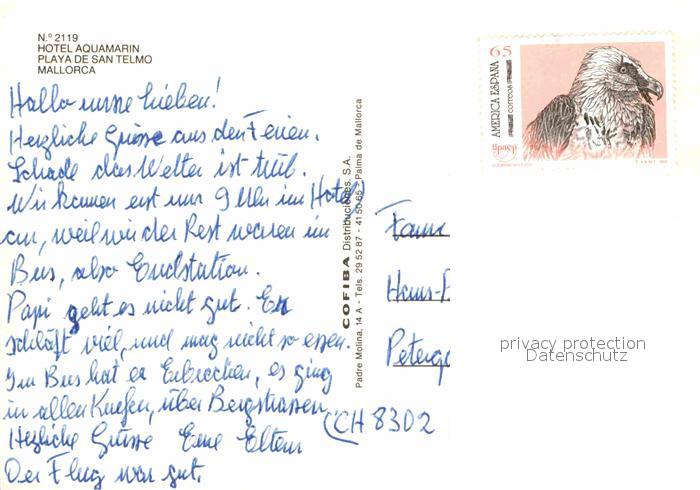 N.º 2119
HOTEL AQUAMARIN
PLAYA DE SAN TELMO
MALLORCA
Hallo unsre Lieben!
Herzliche Grüsse aus den Ferien.
Schade das Wetter ist trüb.
Wir kamen erst um 9 Uhr im Hotel
an, weil wir der Rest waren im
Bus, also Endstation.
Papi geht es nicht gut. Er
schläft viel, und mag nicht so essen.
Im Bus hat er Erbrechen, es ging
in allen Kurfen, über Bergstrassen
Herzliche Grüsse Eure Eltern
Der Flug war gut.
COFIBA Distribuciones, S.A.
Padre Molina, 14 A - Tels. 29 52 87 - 41 50 65 - Palma de Mallorca
65
AMERICA ESPAÑA
correos
upaep
Fam
Hans-P
Peterg
CH 8302
privacy protection
Datenschutz